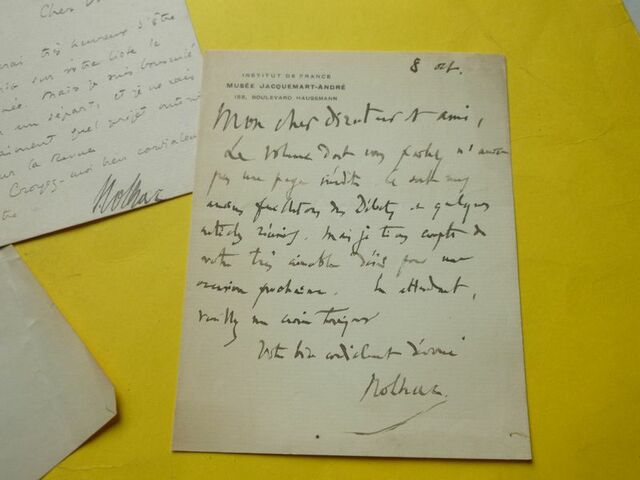 Cher
très heureux d'être
sur votre liste le
Mais je suis bousculé
un départ, et je ne sais
quel projet
sur la Revue
Croyez-moi bien cordialement
Nolhac
8 oct.
INSTITUT DE FRANCE
MUSÉE JACQUEMART-ANDRÉ
158, BOULEVARD HAUSSMANN
Mon cher Directeur et ami,
Le volume dont vous parlez n'aura
pas une page inédite. Ce sont mes
anciens feuilletons des Débats et quelques
articles récents. Mais je tiens compte de
votre très aimable désir pour une
occasion prochaine. En attendant,
veuillez me croire toujours
Votre bien cordialement dévoué
Nolhac